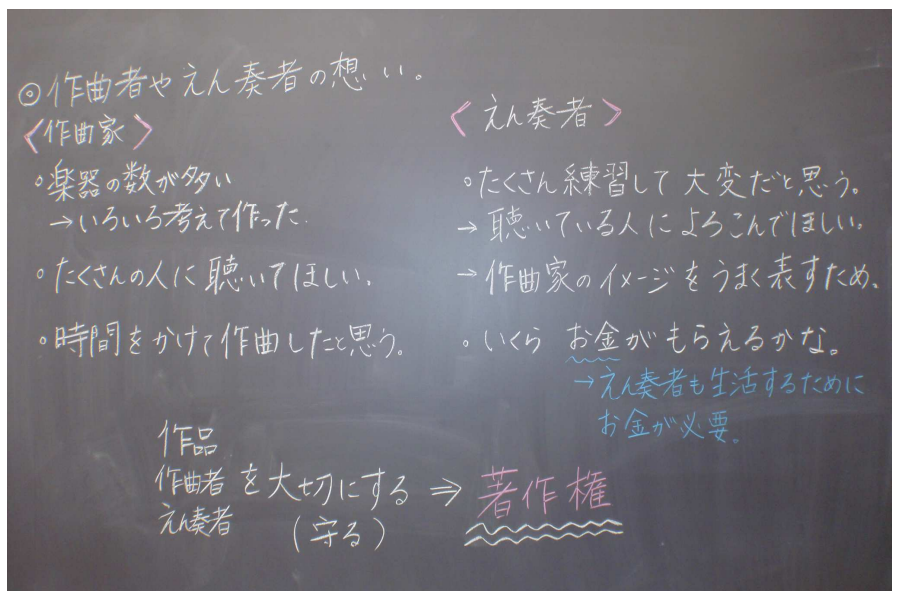 ◎作曲者やえん奏者の想い。
〈作曲家〉
・楽器の数が多い
→いろいろ考えて作った.
・たくさんの人に聴いてほしい。
・時間をかけて作曲したと思う。
〈えん奏者〉
・たくさん練習して大変だと思う。
→聴いている人によろこんでほしい。
→作曲家のイメージをうまく表すため。
・いくら お金がもらえるかな。
→えん奏者も生活するために
お金が必要。
作品
作曲者 を大切にする ⇒ 著作権
えん奏者 (守る)